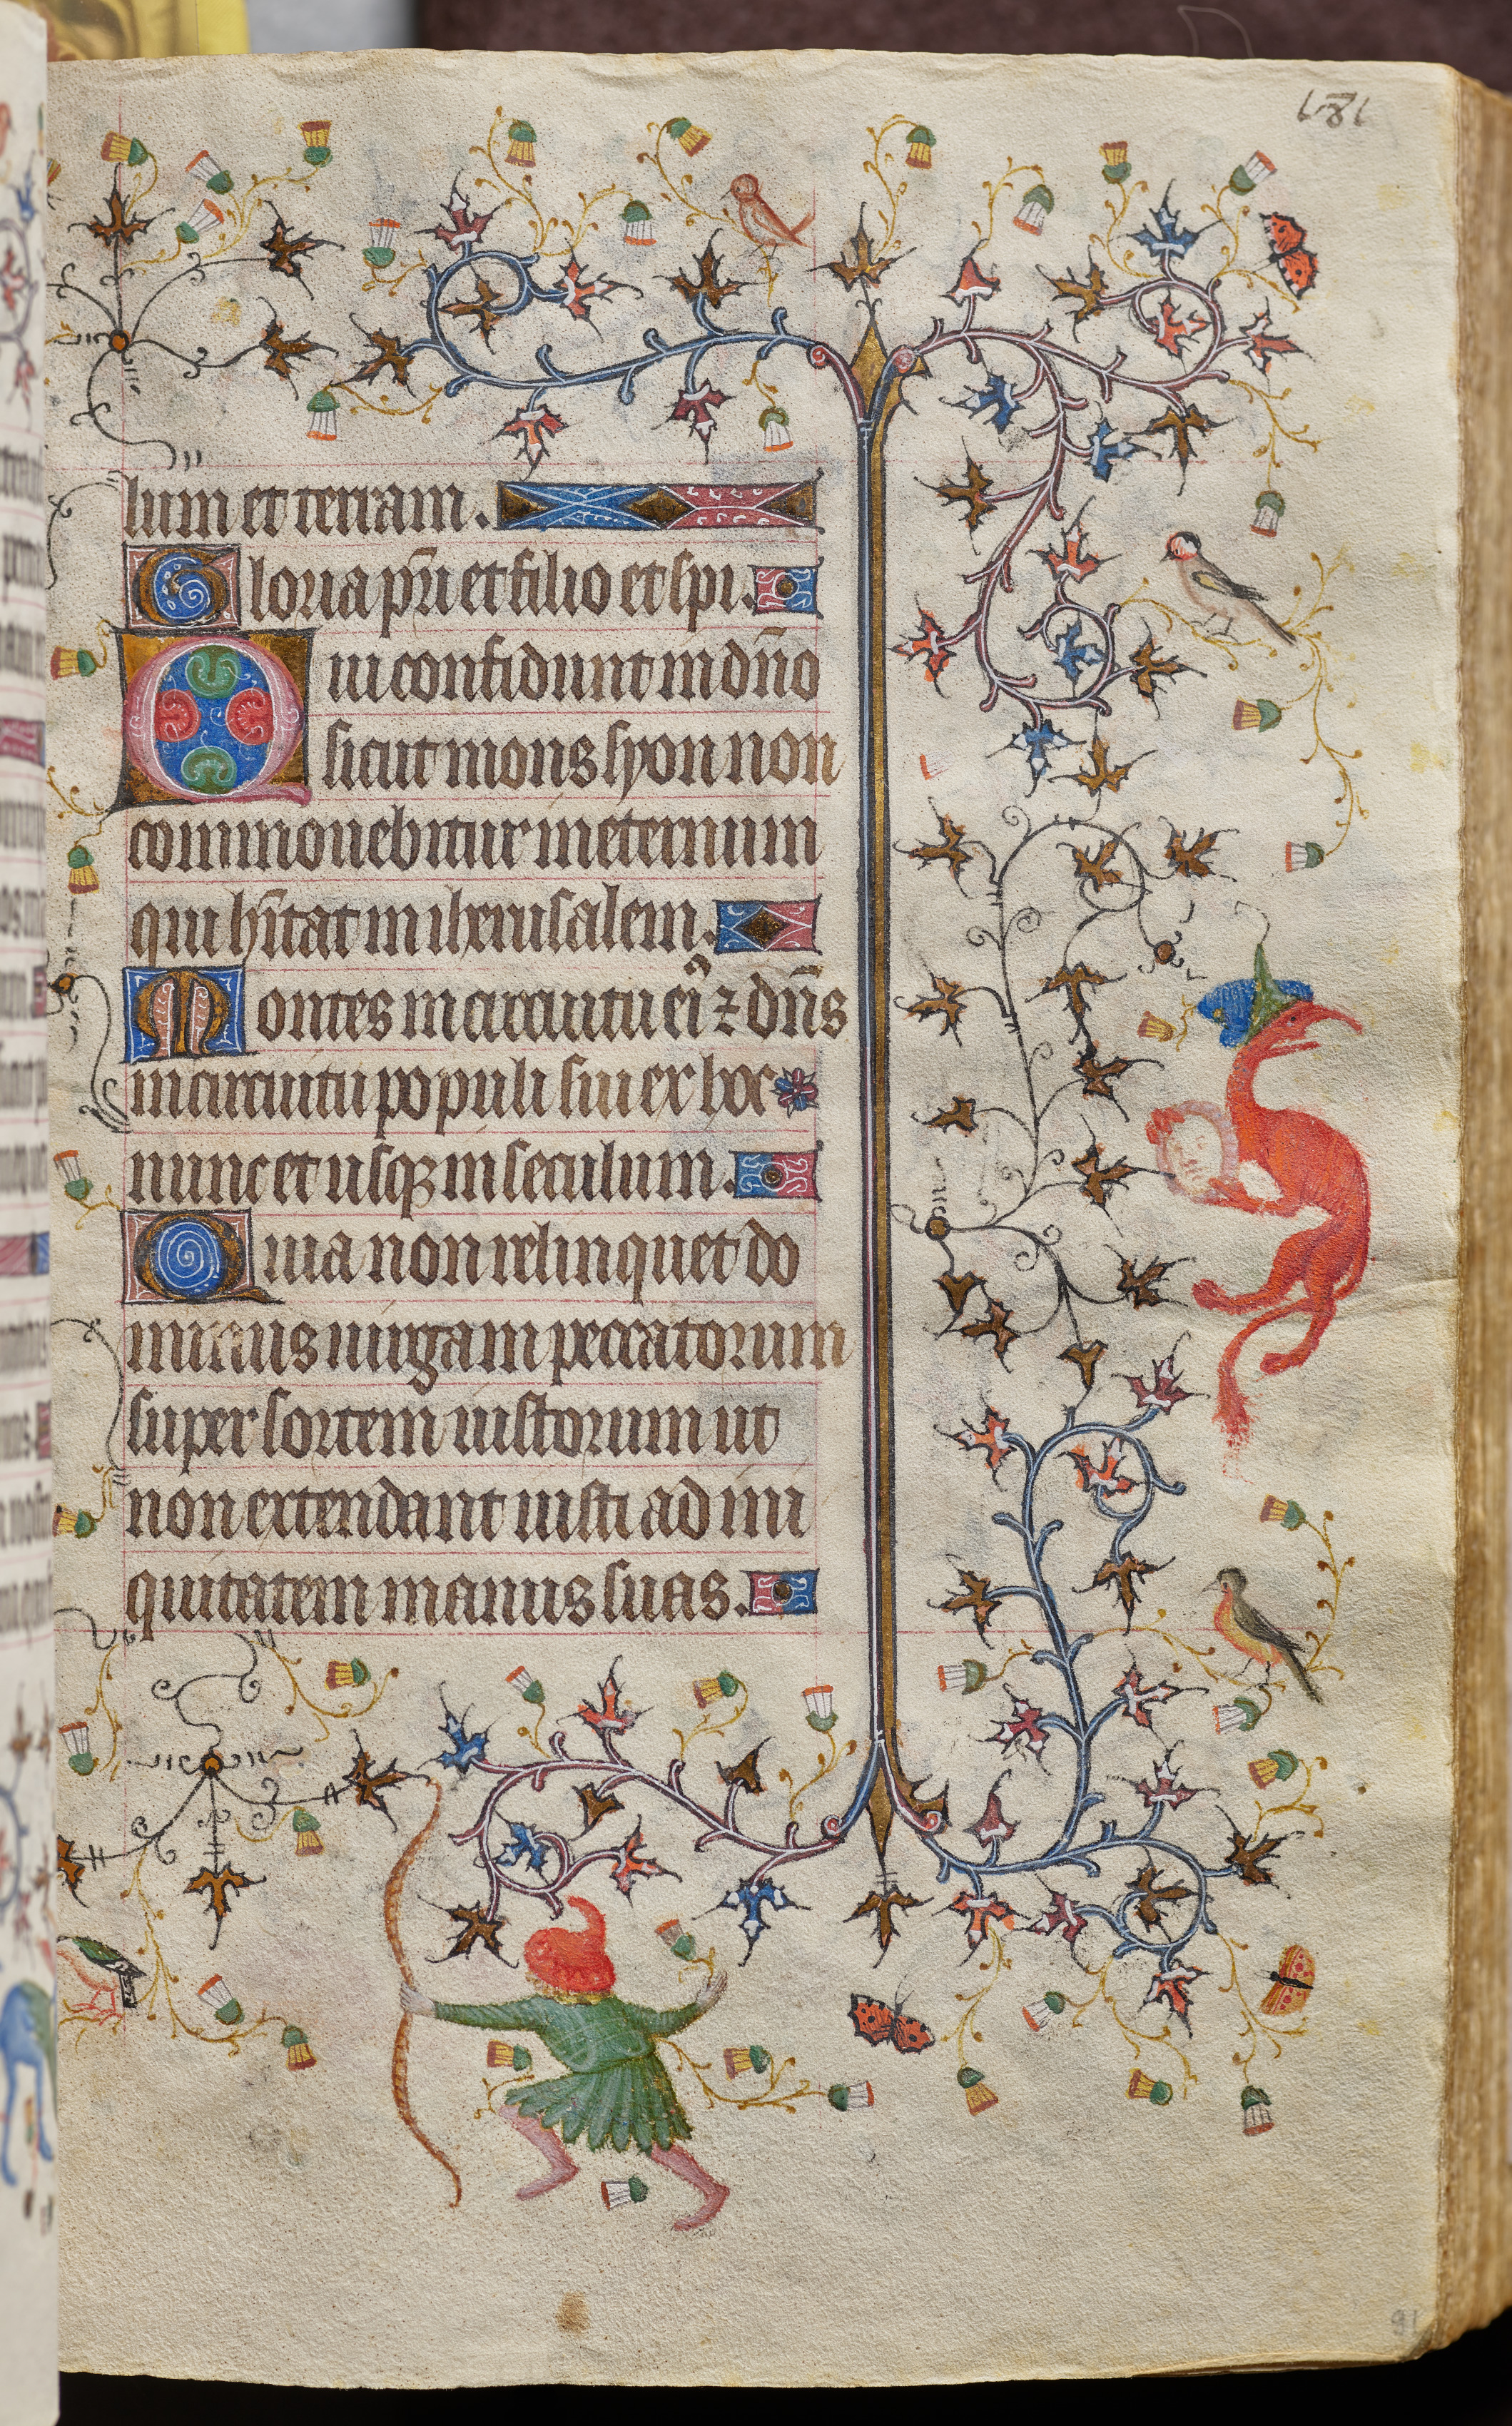 181
lum et terram.
Gloria pr̄i et filio et spi.
Qui confidunt in dn̄o
sicut mons syon non
commouebitur in eternum
qui hītat in iherusalem.
Montes in circuitu ei⁹ ⁊ dn̄s
in circuitu populi sui ex hoc
nunc et usqꝫ in seculum.
Quia non relinquet do
minus uirgam peccatorum
super sortem iustorum ut
non extendant iusti ad ini
quitatem manus suas.
91